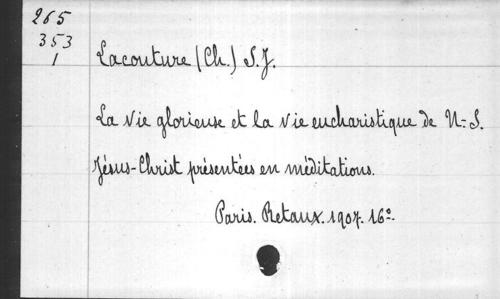 265
353
1
Lacouture (Ch.) S.J.
La vie glorieuse et la vie eucharistique de N.-S.
Jésus-Christ présentées en méditations.
Paris. Retaux. 1907. 16º.